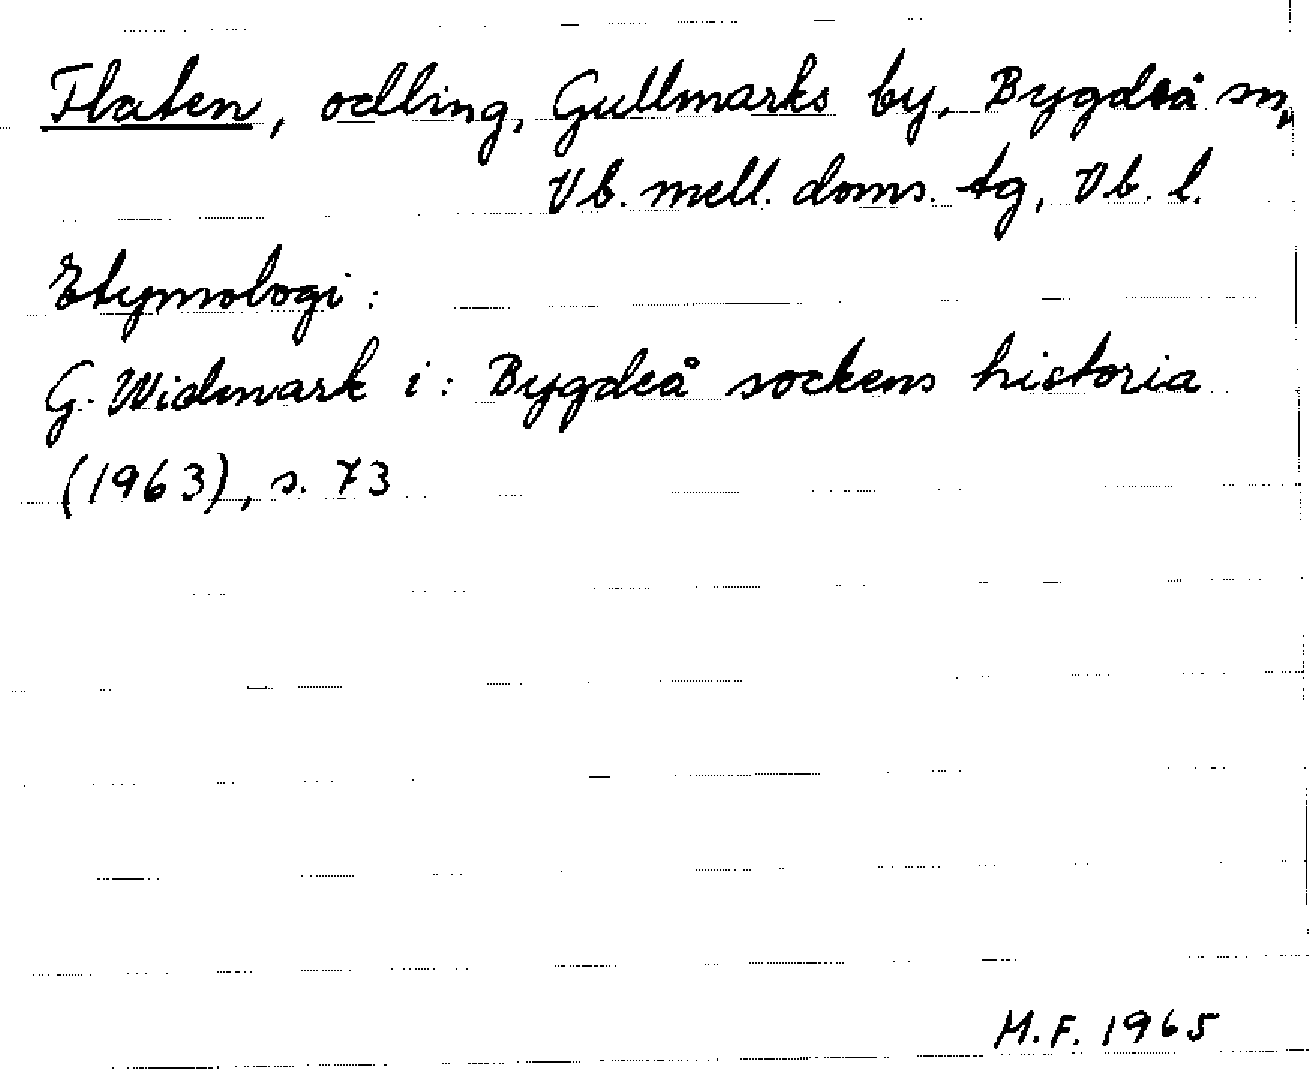 Flaten, odling, Gullmarks by, Bygdeå sn,
Vb. mell. doms. tg, Vb. l.
Etymologi:
G. Widmark i: Bygdeå sockens historia
(1963), s. 73
M.F. 1965